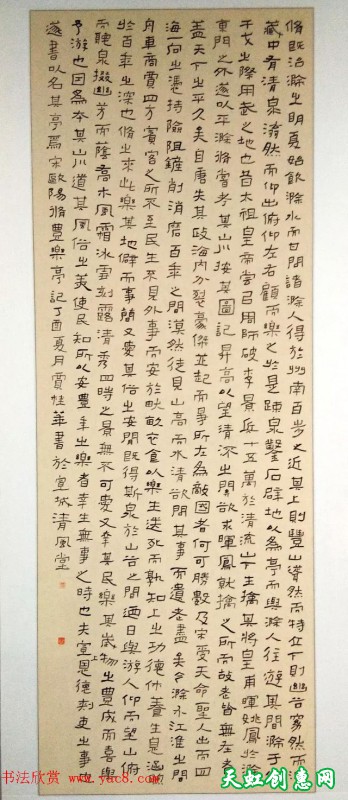 脩既治滁之明夏始飲滁水而甘問諸滁人得於州南百步之近其上則豐山聳然而特立下則幽谷窈然而深
藏中有清泉滃然而仰出俯仰左右顧而樂之於是疏泉鑿石辟地以為亭而與滁人往遊其間滁于五代
干戈之際用武之地也昔太祖皇帝嘗以周師破李景兵十五萬於清流山下生擒其將皇甫暉姚鳳於滁
東門之外遂以平滁脩嘗考其山川按其圖記昇高以望清流之關欲求暉鳳就擒之所而故老皆無在者
蓋天下之平久矣自唐失其政海內分裂豪傑並起而爭所在為敵國者何可勝數及宋受天命聖人出而四
海一向之憑恃險阻鏟削消磨百年之間漠然徒見山高而水清欲問其事而遺老盡矣今滁介江淮之間
舟車商賈四方賓客之所不至民生不見外事而安於畎畝衣食以樂生送死而孰知上之功德休養生息涵煦
於百年之深也脩之來此樂其地僻而事簡又愛其俗之安閒既得斯泉於山谷之間乃日與滁人仰而望山俯
而聽泉掇幽芳而蔭喬木風霜冰雪刻露清秀四時之景無不可愛又幸其民樂其歲物之豐成而喜與
予游也因為本其山川道其風俗之美使民知所以安豐年之樂者幸生無事之時也夫宣上恩德刺史之事也
遂書以名其亭焉宋歐陽脩豐樂亭記丁酉夏月賈桂華書於宣城清風堂
书法欣赏 www.yac8.com
天虹创意网